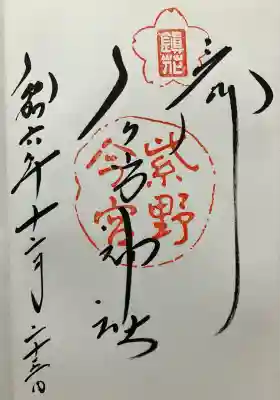 奉拝
鎭花
今宮神社
紫野
今宮
令和六年十二月二十三日